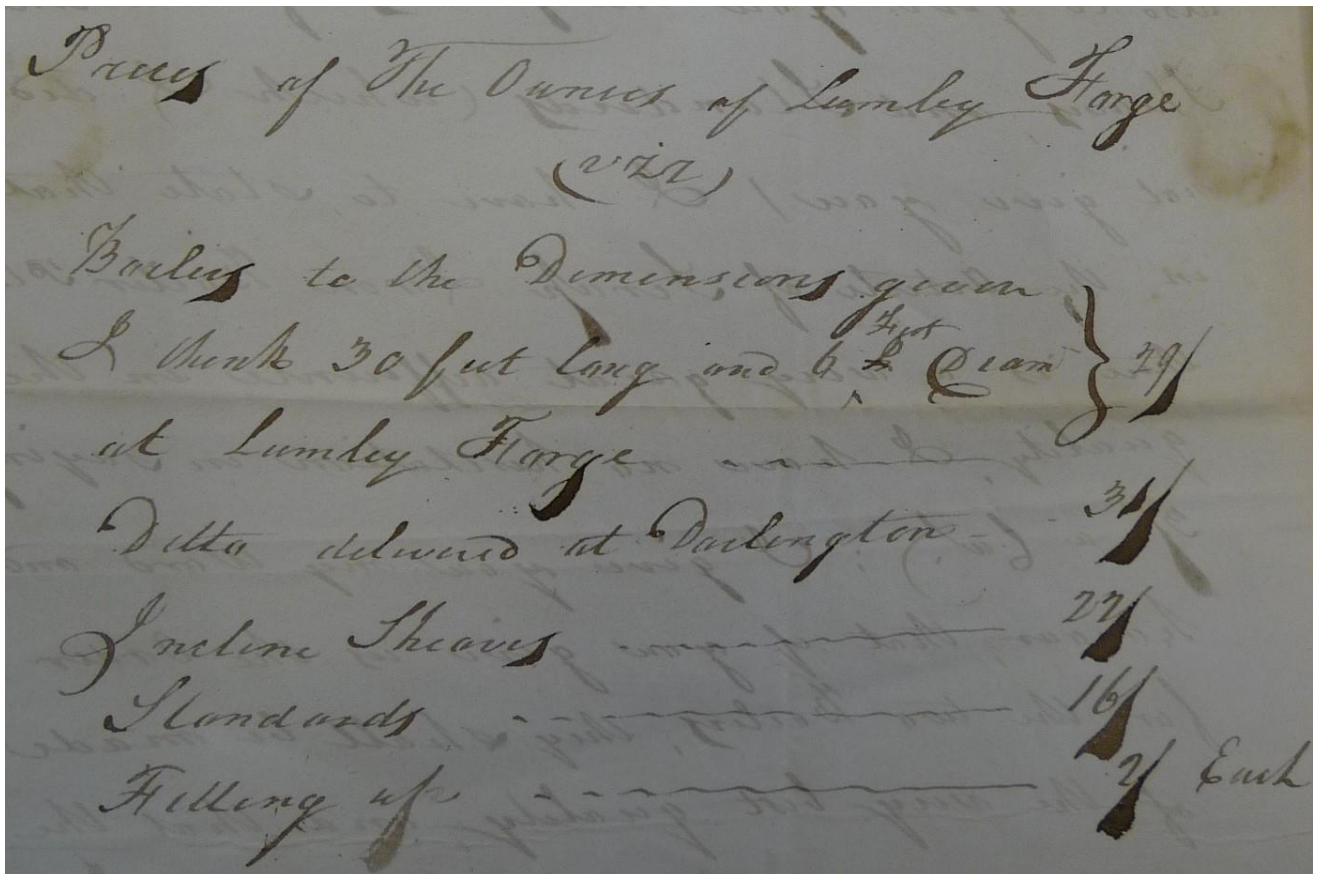 Prices of The Owners of Lumley Forge
(viz)
Boilers to the Dimensions given
I think 30 feet long and 6 Feet Diam 29/
at Lumley Forge
Ditto delivered at Darlington 31/
Incline Sheaves 22/
Standards 16/
Fitting up 2/ Each